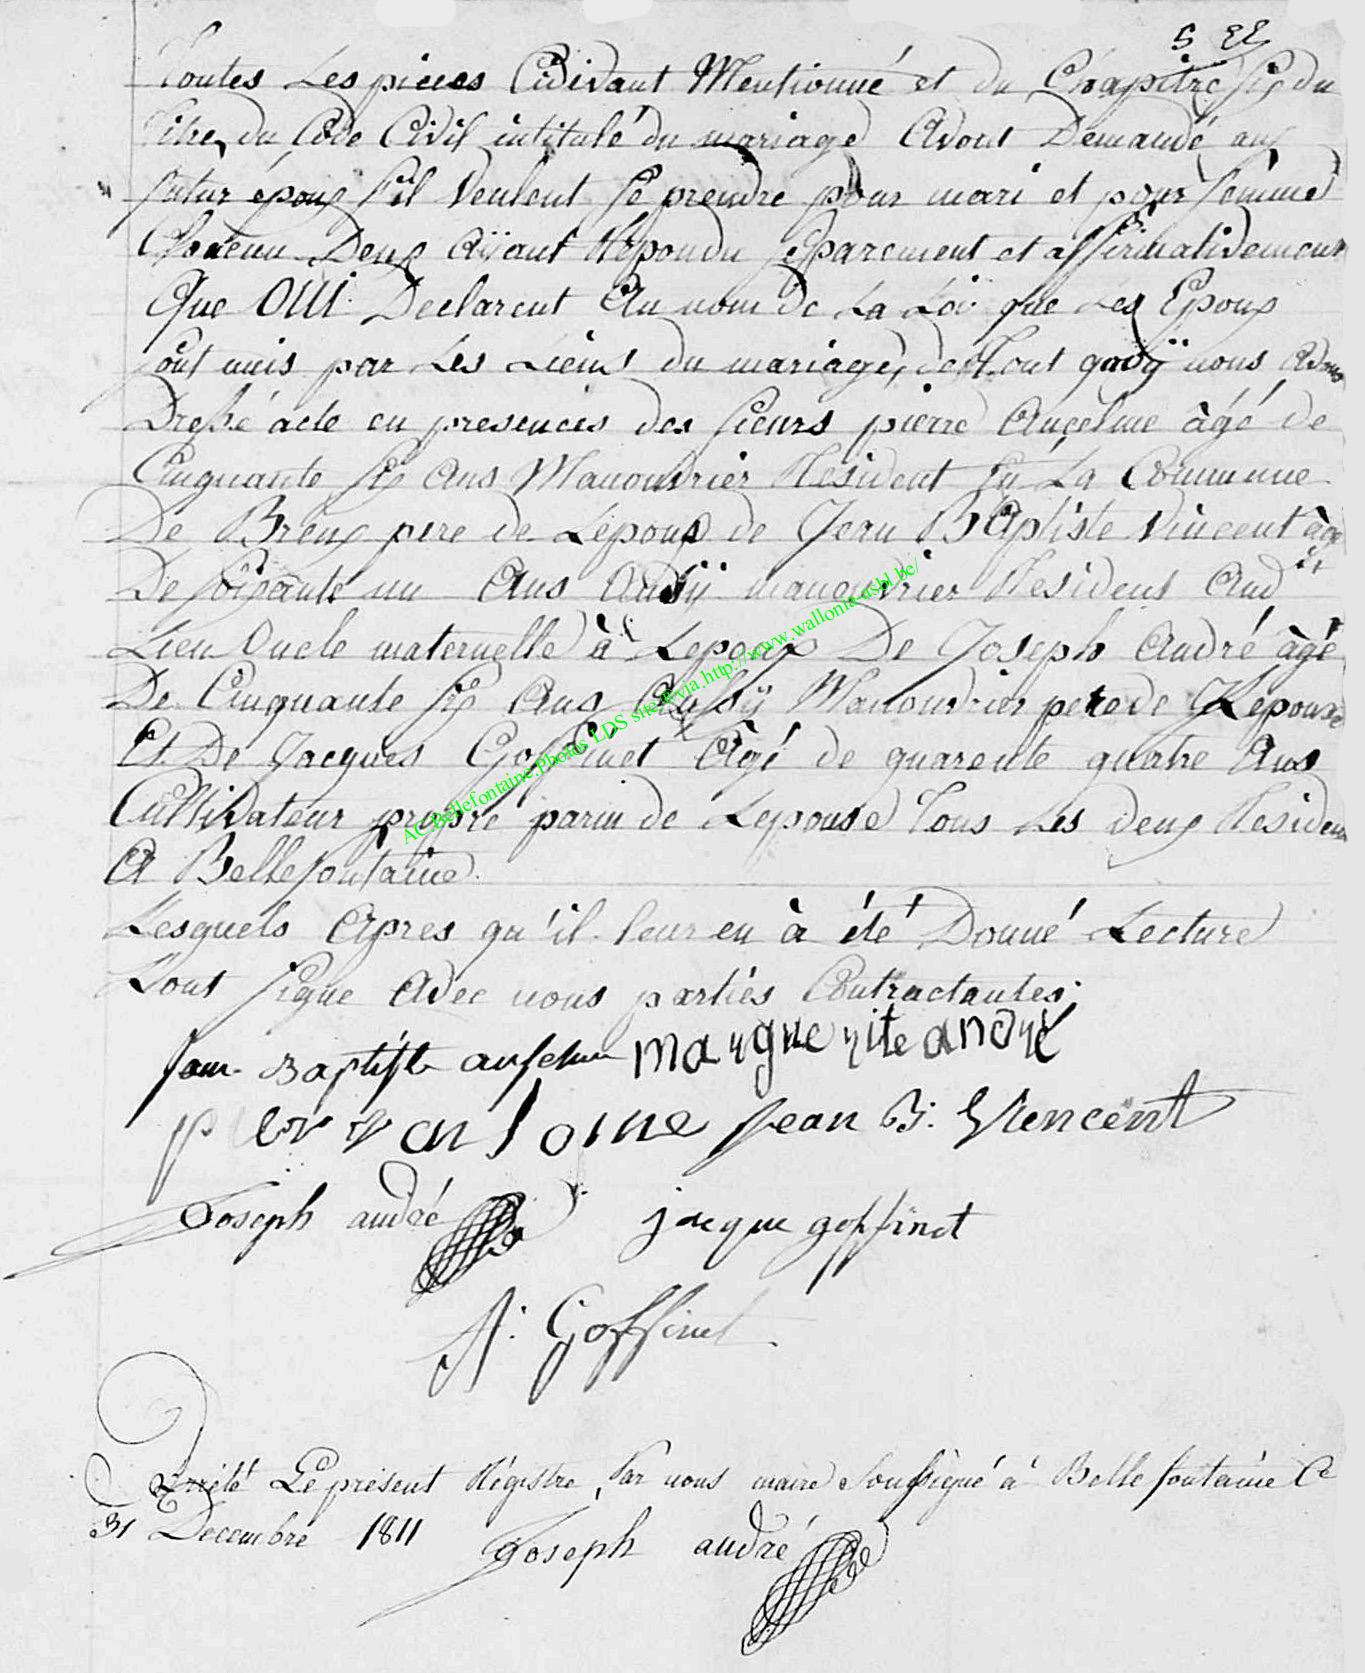 toutes Les pieces Cidivant Mentionné et du Chapitre six du
titre du Code Civil intitulé du mariage Avons Demandé aux
futur époux s'il Veulent se prendre pour mari et pour femme
Chacunn Deux aÿant Repondu separement et affirmativement
Que OUI Declarent Au nom de La Loi que Les Epoux
sont unis par Les Liens du mariage, de tout quoÿ nous avons
Dressé acte en presences des sieurs pierre Ancelme àgé de
Cinquante six Ans Manouvrier Resident En La Commune
De Breux pere de Lépoux de Jean BAptiste Vincent àgé
De soixante un Ans Aussÿ manouvrier Residens Audit
Lieu Oncle maternelle à Lepoux De Joseph André àgé
De Cinquante six Ans Aussÿ Manouvrier pere de Lepouse
Et De Jacques Goffinet Agé de quarente quatre Ans
Cultivateur propre parin de Lepouse Tous Les Deux Residens
A Bellefontaine.
Lesquels Apres qu'il leur en à été Donné Lecture
L'ont signe Avec nous partiés Contractantes.
Jean Baptiste anselme marguerite andré
Jean B: Vincent
Joseph andré jacque goffinet
Goffinet
Arrété Le présent Régistre, Par nous maire soussigné à Bellefontaine Ce
31 Decembre 1811 Joseph andré
AC Bellefontaine Photos LDS site @ via http://www.wallonia-asbl.be/